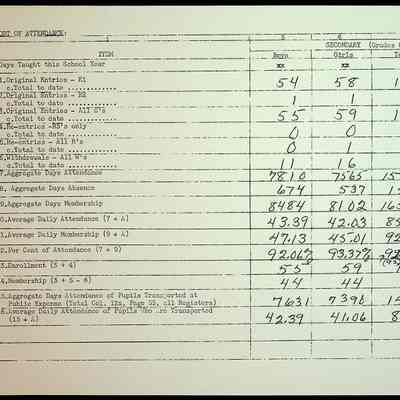 ORT OF ATTENDANCE:
5 6
SECONDARY (Grades
ITEM Boys Girls
Days Taught this School Year xx xx
1.Original Entries - E1
c.Total to date ............. 54 58 1
2.Original Entries - E2
c.Total to date ............. 1 1
3.Original Entries - All E's
c.Total to date ............. 55 59 1
4.Re-entries - R3's only
c.Total to date ............. 0 0
5.Re-entries - All R's
c.Total to date ............. 0 1
6.Withdrawals - All W's
c.Total to date ............. 11 16
7.Aggregate Days Attendance 7810 7565 15
8. Aggregate Days Absence 674 537
9.Aggregate Days Membership 8484 8102 16
0.Average Daily Attendance (7 ÷ A) 43.39 42.03 8
1.Average Daily Membership (9 ÷ A) 47.13 45.01 92
2.Per Cent of Attendance (7 ÷ 9) 92.06% 93.37% 92
3.Enrollment (3 + 4) 55 59
4.Membership (3 + 5 - 6) 44 44
5.Aggregate Days Attendance of Pupils Transported at
Public Expense (Total Col. 12a, Page 05, all Registers) 7631 7390 15
6.Average Daily Attendance of Pupils Who Are Transported
(15 ÷ A) 42.39 41.06 8